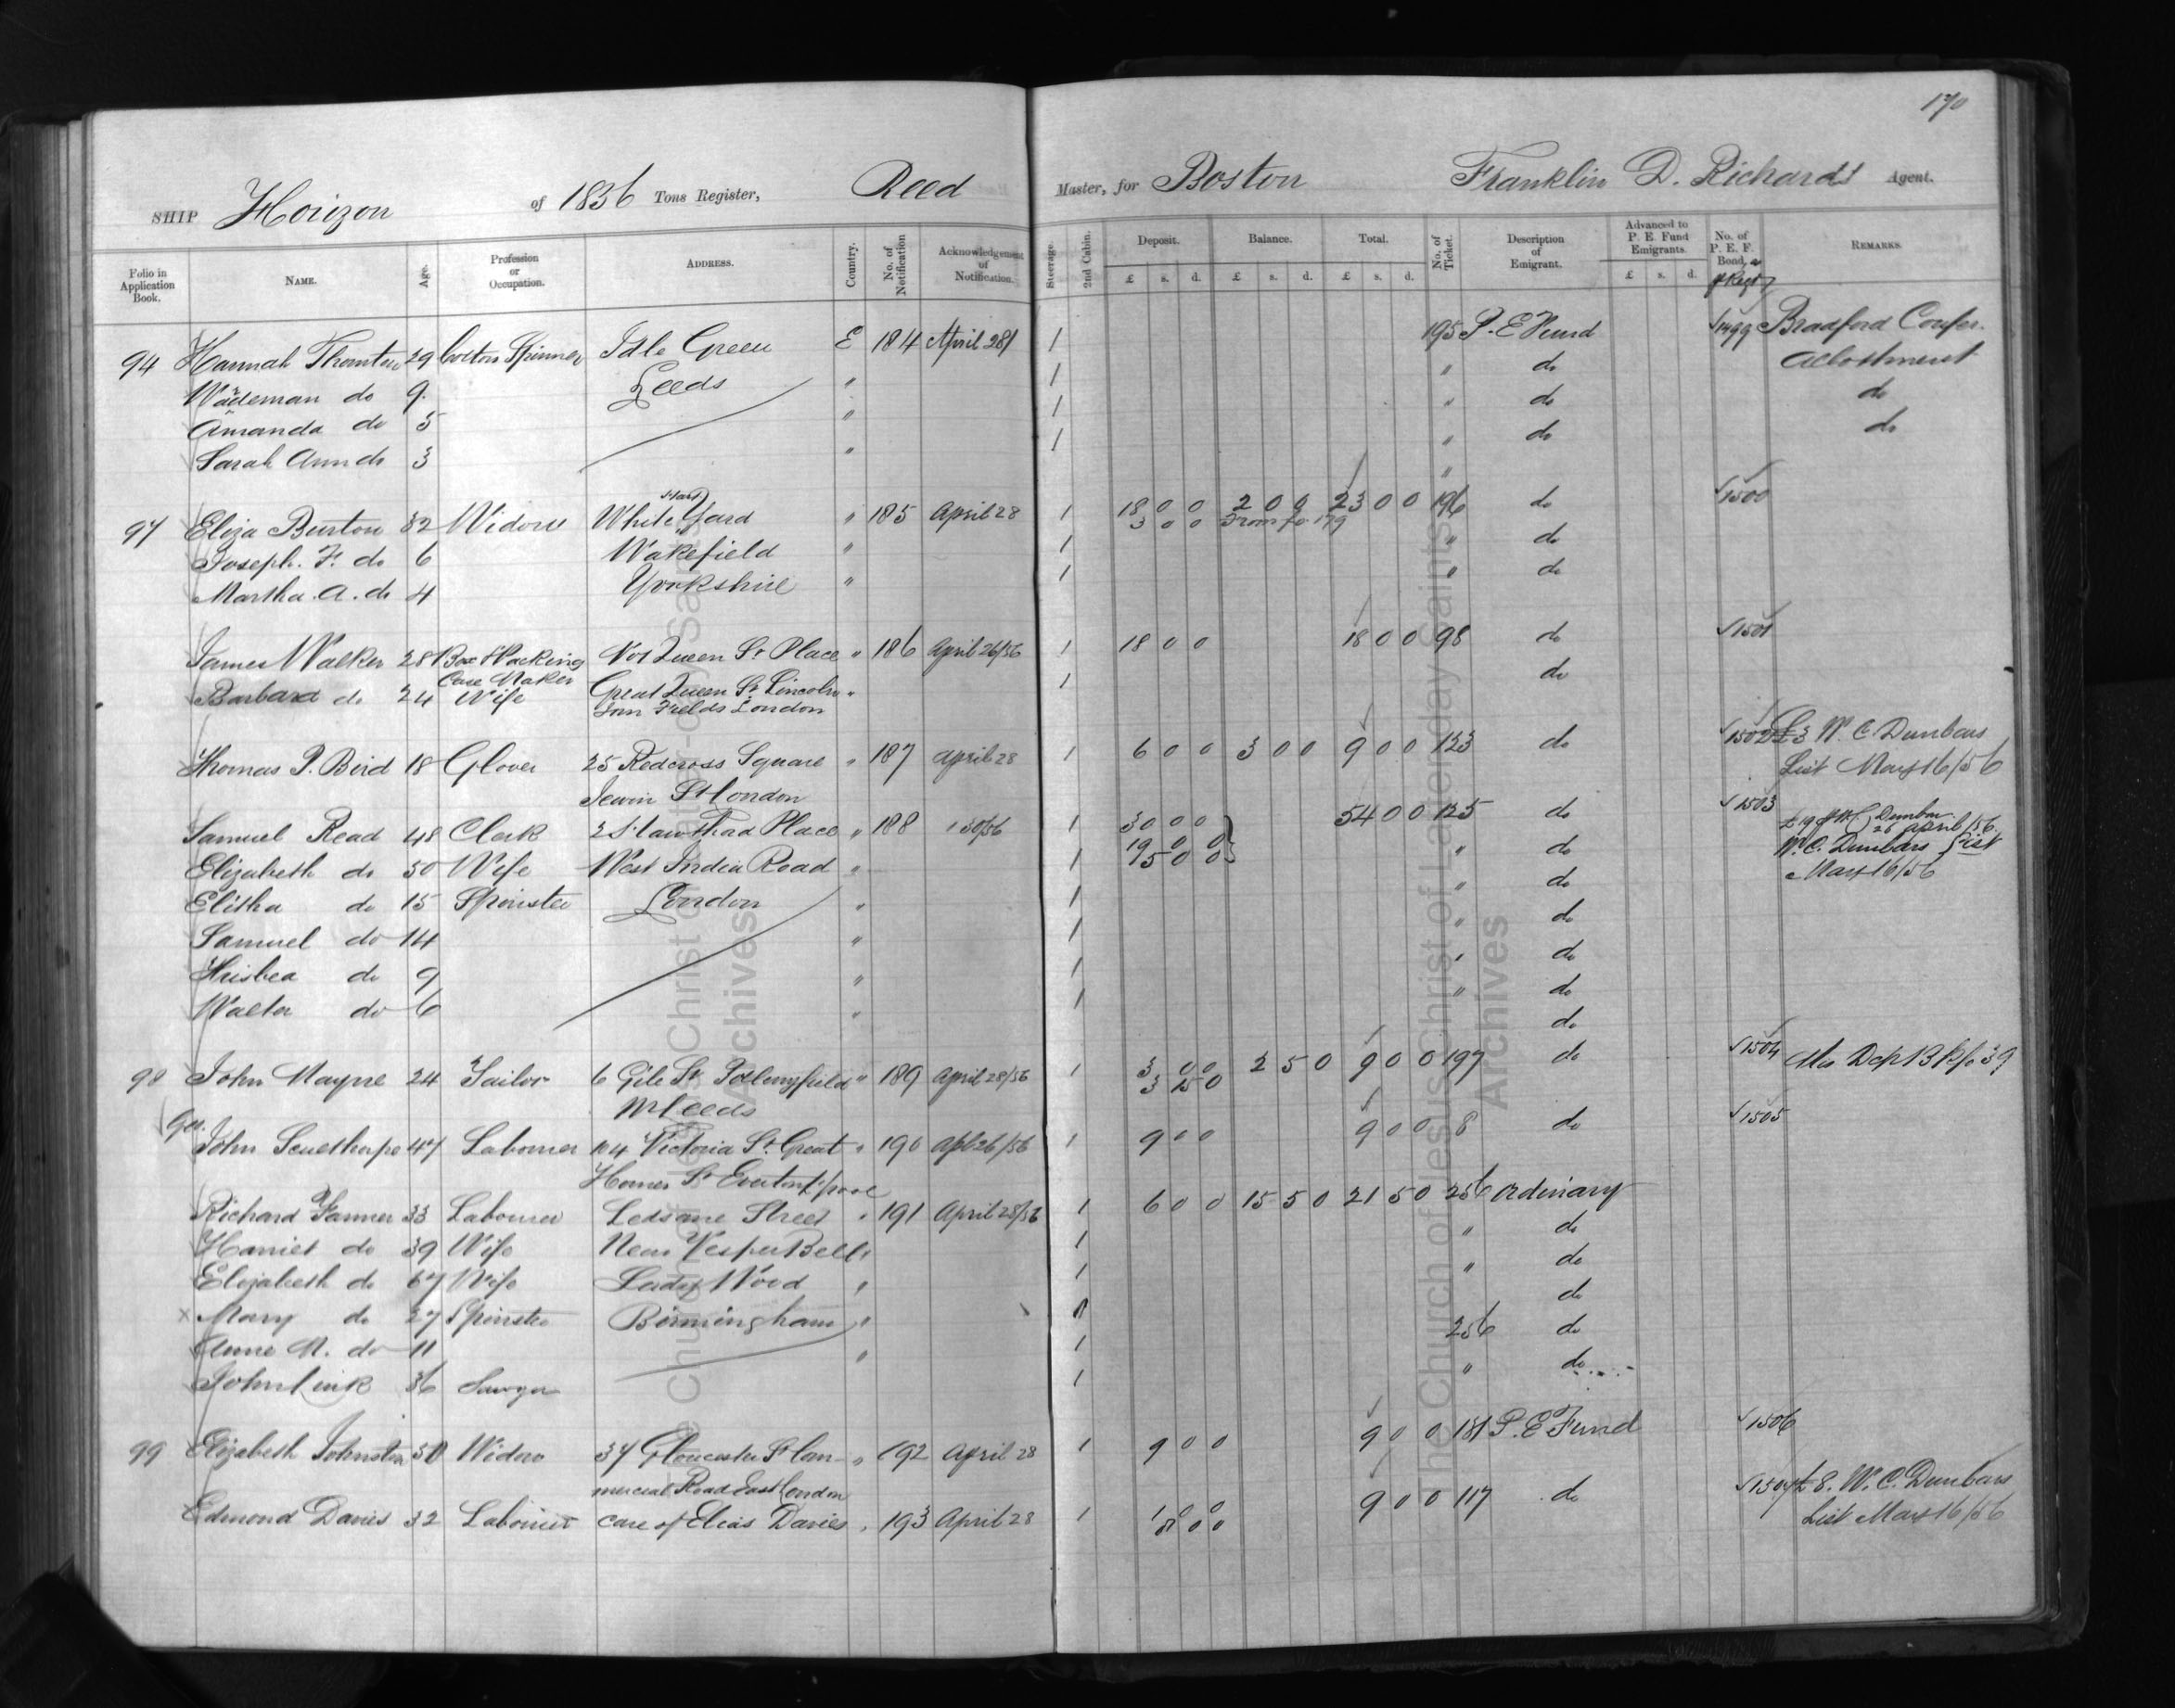 170
SHIP Horizon of 1836 Tons Register, Reed Master, for Boston Franklin D. Richards Agent.
Folio in Application Book. NAME. Age. Profession or Occupation. ADDRESS. Country. No. of Notification Acknowledgement of Notification. Steerage. 2nd Cabin. Deposit. £ s. d. Balance. £ s. d. Total. £ s. d. No. of Ticket. Description of Emigrant. Advanced to P. E. Fund Emigrants. £ s. d. No. of P. E. F. Bond, REMARKS.
94 Hannah Thornton 29 Cotton Spinner Idle Green E 184 April 28 1 195 P. E Fund 1499 Bradford Confer.
Wademan do 9 Leeds " 1 " do Allottment
Amanda do 5 " 1 " do do
Sarah Ann do 3 " 1 " do do
97 Eliza Burton 32 Widow White Yard " 185 April 28 1 18 0 0 2 0 0 23 0 0 196 do 1500
3 0 0 From fo 179
Joseph. F. do 6 Wakefield " 1 " do
Martha. A. do 4 Yorkshire " 1 " do
James Walker 28 Box & Packing No 1 Queen St Place " 186 April 26/56 1 18 0 0 18 0 0 98 do 1501
Case Maker
Barbara do 24 Wife Great Queen St Lincoln " 1 do
Inn Fields London
Thomas P. Bird 18 Glover 25 Redcross Square " 187 April 28 1 6 0 0 3 0 0 9 0 0 123 do 1502 £3 W. C. Dunbars
Jewin St London List May 16/56
Samuel Read 48 Clerk 2 Place " 188 " 30/56 1 30 0 0 54 0 0 125 do 1503 Dunbar
25 April /56.
Elizabeth do 50 Wife West India Road " 1 19 0 0 " do W. C. Dunbars List
5 0 0 May 16/56
Elitha do 15 Spinster London " 1 " do
Samuel do 14 " 1 " do
Thisbea do 9 " 1 " do
Walter do 6 " 1 " do
do
98 John Mayne 24 Tailor 6 Gile St " 189 April 28/56 1 3 0 0 2 5 0 9 0 0 197 do 1504 Dep B k fo 39
Leeds 3 15 0
John 47 Labourer 104 Victoria St. Great " 190 Apl 26/56 1 9 0 0 9 0 0 8 do 1505
Homer St Everton L'pool
Richard Farmer 33 Labourer Ledsame Street " 191 April 28/56 1 6 0 0 15 5 0 21 5 0 256 Ordinary
Harriet do 39 Wife Near Vesper Bell " 1 " do
Elizabeth do 67 Wife Lady Wood " 1 " do
x Mary do 27 Spinster Birmingham " 1 do
Anne M. do 11 " 1 256 do
John Link 36 Sawyer 1 " do
99 Elizabeth Johnston 30 Widow 37 Gloucester St Com- " 192 April 28 1 9 0 0 9 0 0 181 P. E Fund 1506
mercial Road East London
Edmond Davies 32 Labourer care of Elias Davies " 193 April 28 1 1 0 0 9 0 0 117 do 1507 £8. W. C. Dunbars
8 0 0 List May 16/56
The Church of Jesus Christ of Latter-day Saints
Archives
The Church of Jesus Christ of Latter-day Saints
Archives